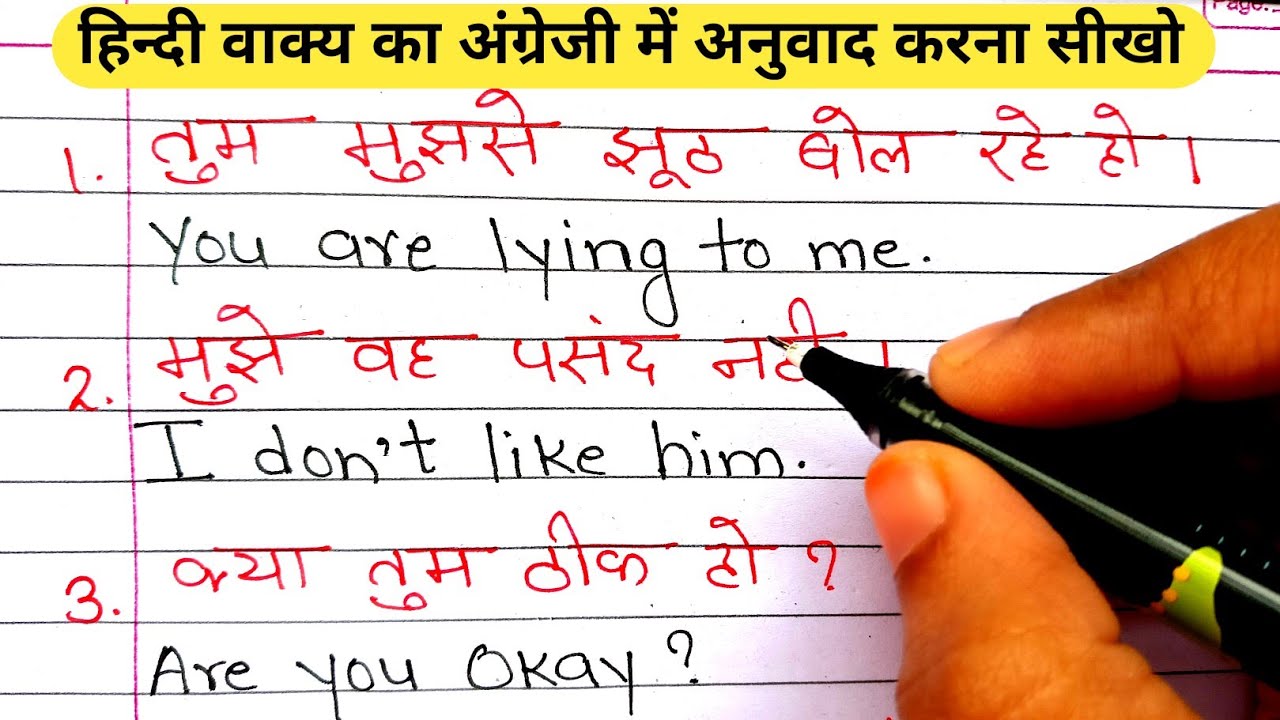 Page:
हिन्दी वाक्य का अंग्रेजी में अनुवाद करना सीखो
1. तुम मुझसे झूठ बोल रहे हो।
You are lying to me.
2. मुझे वह पसंद नहीं।
I don't like him.
3. क्या तुम ठीक हो?
Are you Okay?